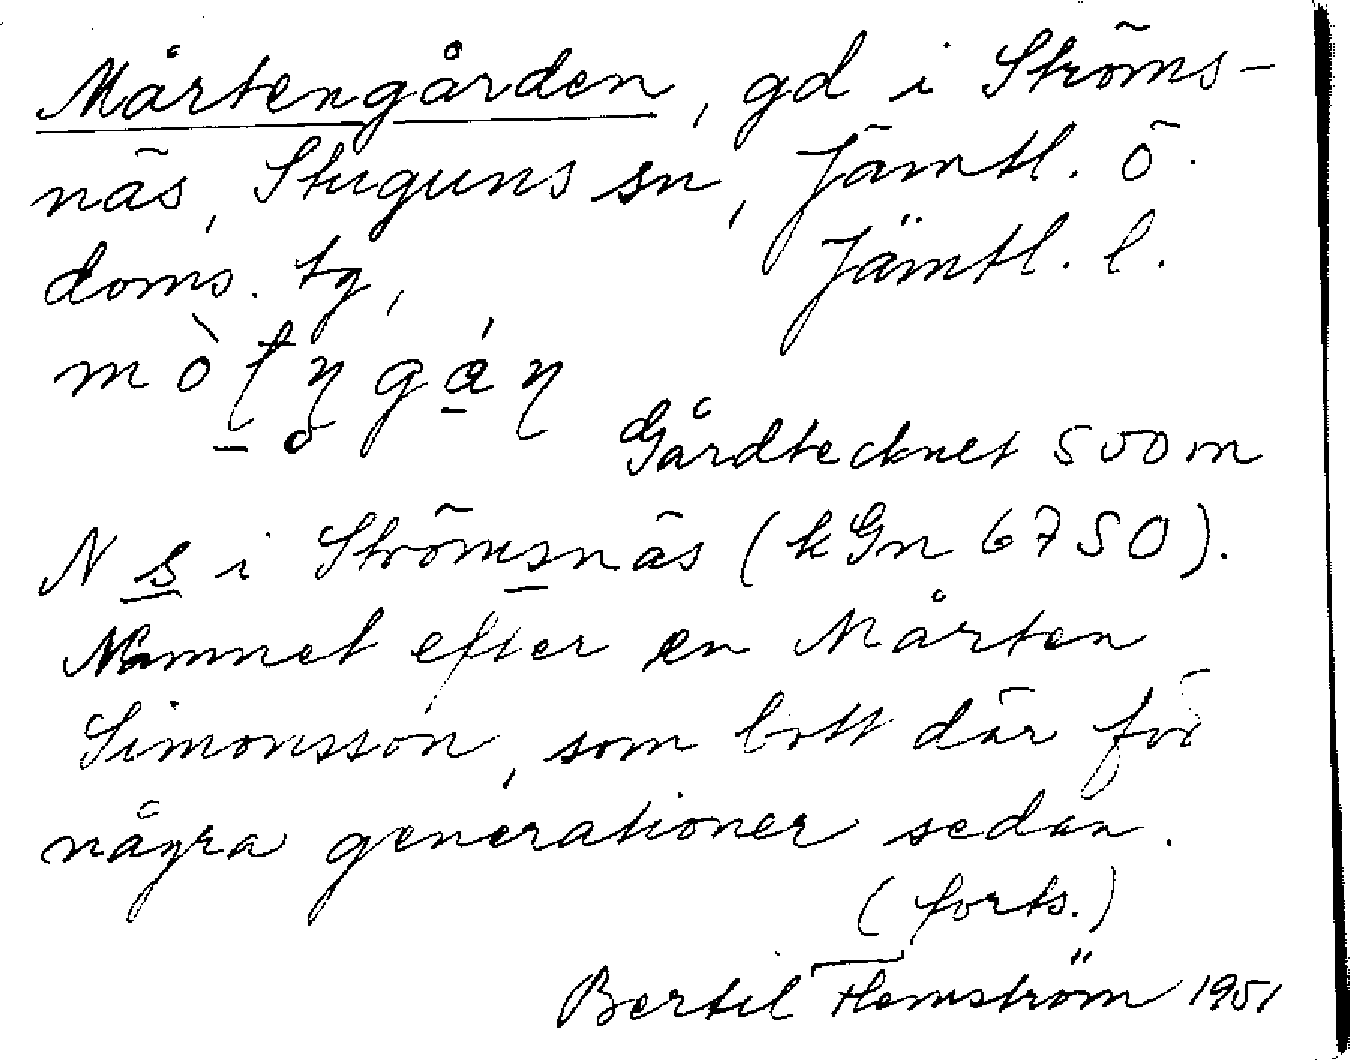 Mårtengården, gd i Ströms-
näs, Stuguns sn, Jämtl. ö.
doms. tg, Jämtl. l.
Gårdtecknet 500 m
N s i Strömsnäs (kGn 6750).
Namnet efter en Mårten
Simonsson, som bott där för
några generationer sedan.
(forts.)
Bertil Flemström 1951